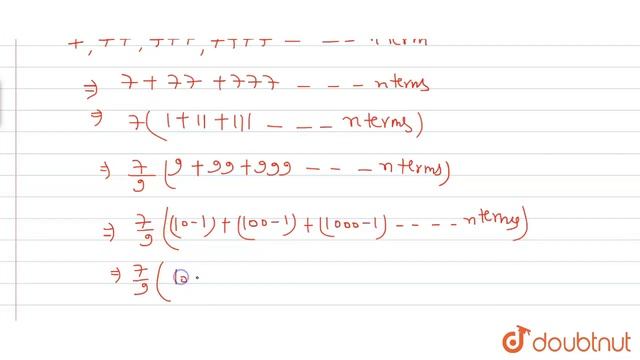 ⇒ 7 + 77 + 777 - - - - n terms
⇒ 7(1+11+111 - - - - n terms)
⇒ 7/9 (9+99+999 - - - - n terms)
⇒ 7/9 ((10-1)+(100-1)+(1000-1) - - - - - n terms)
⇒ 7/9 (10
doubtnut